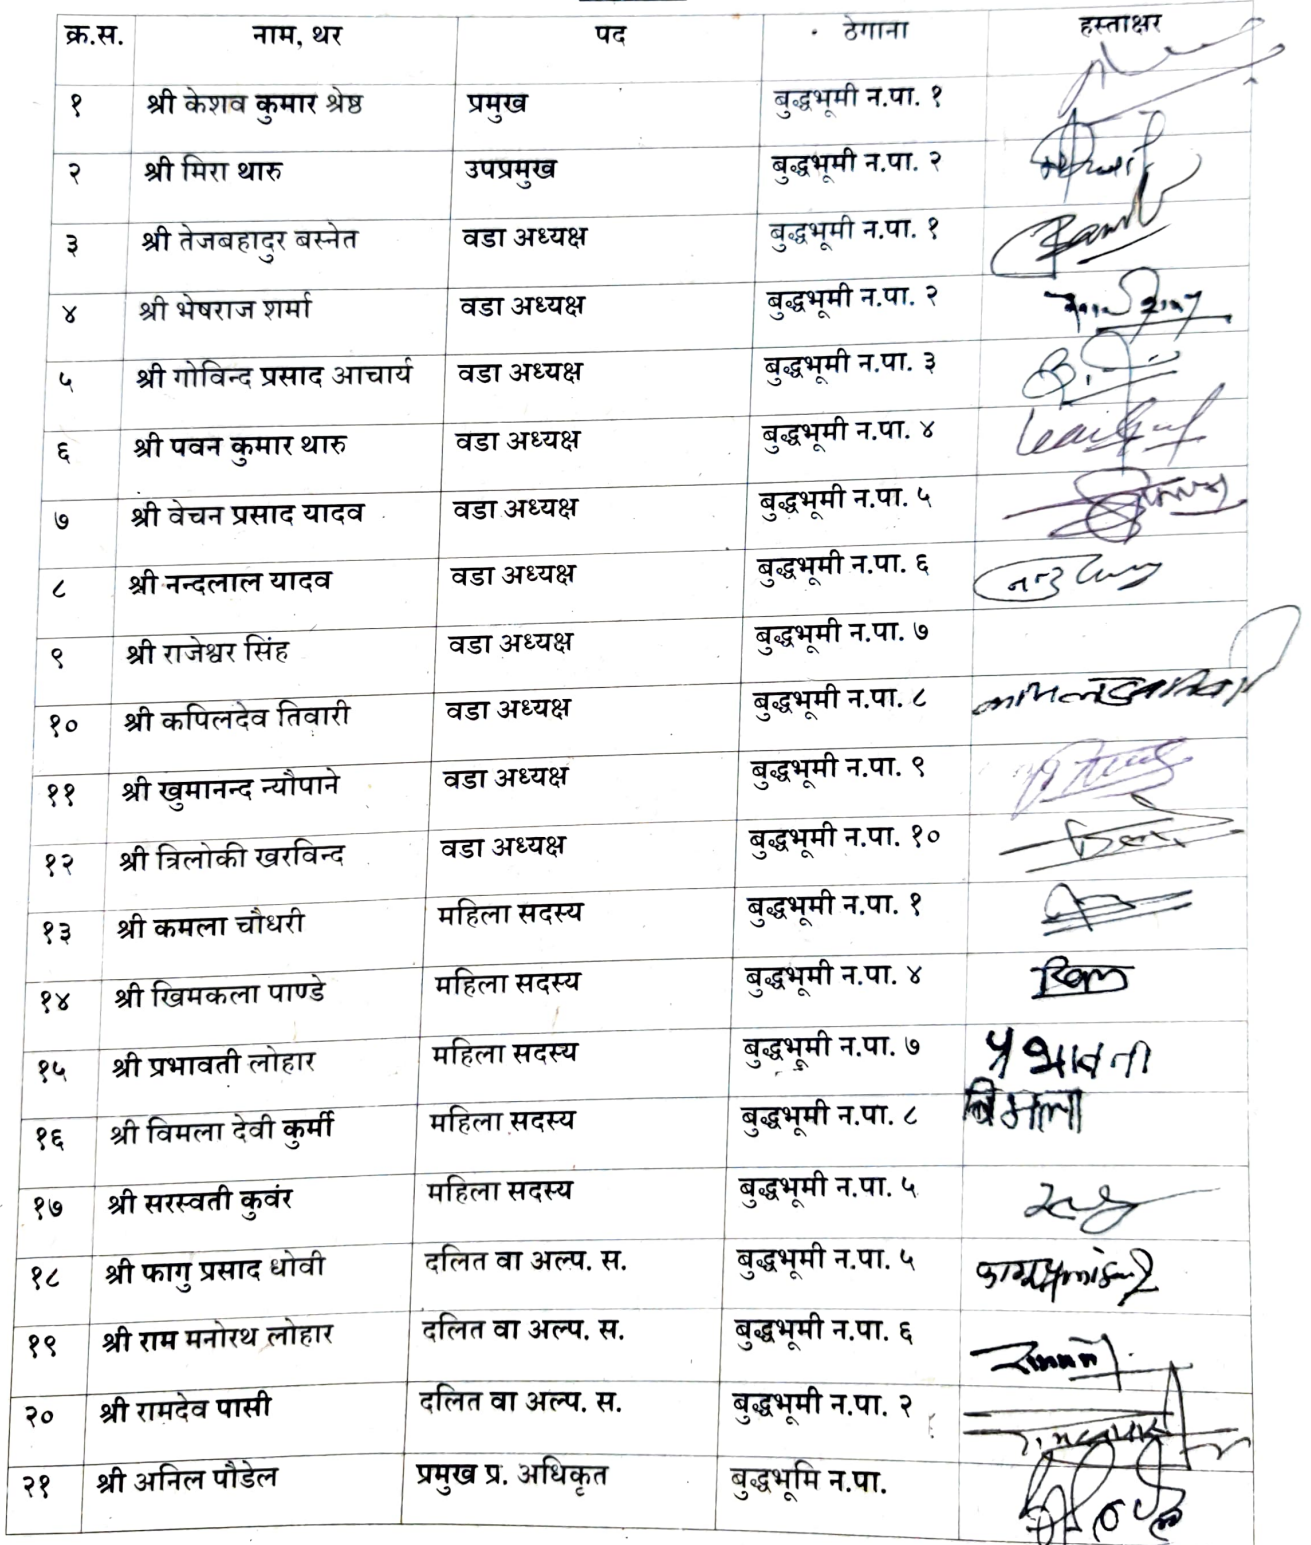 क्र.स. नाम, थर पद ठेगाना हस्ताक्षर
१ श्री केशव कुमार श्रेष्ठ प्रमुख बुद्धभूमी न.पा. १
२ श्री मिरा थारु उपप्रमुख बुद्धभूमी न.पा. २
३ श्री तेजबहादुर बस्नेत वडा अध्यक्ष बुद्धभूमी न.पा. १
४ श्री भेषराज शर्मा वडा अध्यक्ष बुद्धभूमी न.पा. २
५ श्री गोविन्द प्रसाद आचार्य वडा अध्यक्ष बुद्धभूमी न.पा. ३
६ श्री पवन कुमार थारु वडा अध्यक्ष बुद्धभूमी न.पा. ४
७ श्री वेचन प्रसाद यादव वडा अध्यक्ष बुद्धभूमी न.पा. ५
८ श्री नन्दलाल यादव वडा अध्यक्ष बुद्धभूमी न.पा. ६
९ श्री राजेश्वर सिंह वडा अध्यक्ष बुद्धभूमी न.पा. ७
१० श्री कपिलदेव तिवारी वडा अध्यक्ष बुद्धभूमी न.पा. ८
११ श्री खुमानन्द न्यौपाने वडा अध्यक्ष बुद्धभूमी न.पा. ९
१२ श्री त्रिलोकी खरविन्द वडा अध्यक्ष बुद्धभूमी न.पा. १०
१३ श्री कमला चौधरी महिला सदस्य बुद्धभूमी न.पा. १
१४ श्री खिमकला पाण्डे महिला सदस्य बुद्धभूमी न.पा. ४
१५ श्री प्रभावती लोहार महिला सदस्य बुद्धभूमी न.पा. ७ प्रभावती
१६ श्री विमला देवी कुर्मी महिला सदस्य बुद्धभूमी न.पा. ८ विमला
१७ श्री सरस्वती कुवंर महिला सदस्य बुद्धभूमी न.पा. ५
१८ श्री फागु प्रसाद धोवी दलित वा अल्प. स. बुद्धभूमी न.पा. ५
१९ श्री राम मनोरथ लोहार दलित वा अल्प. स. बुद्धभूमी न.पा. ६
२० श्री रामदेव पासी दलित वा अल्प. स. बुद्धभूमी न.पा. २
२१ श्री अनिल पौडेल प्रमुख प्र. अधिकृत बुद्धभूमि न.पा.